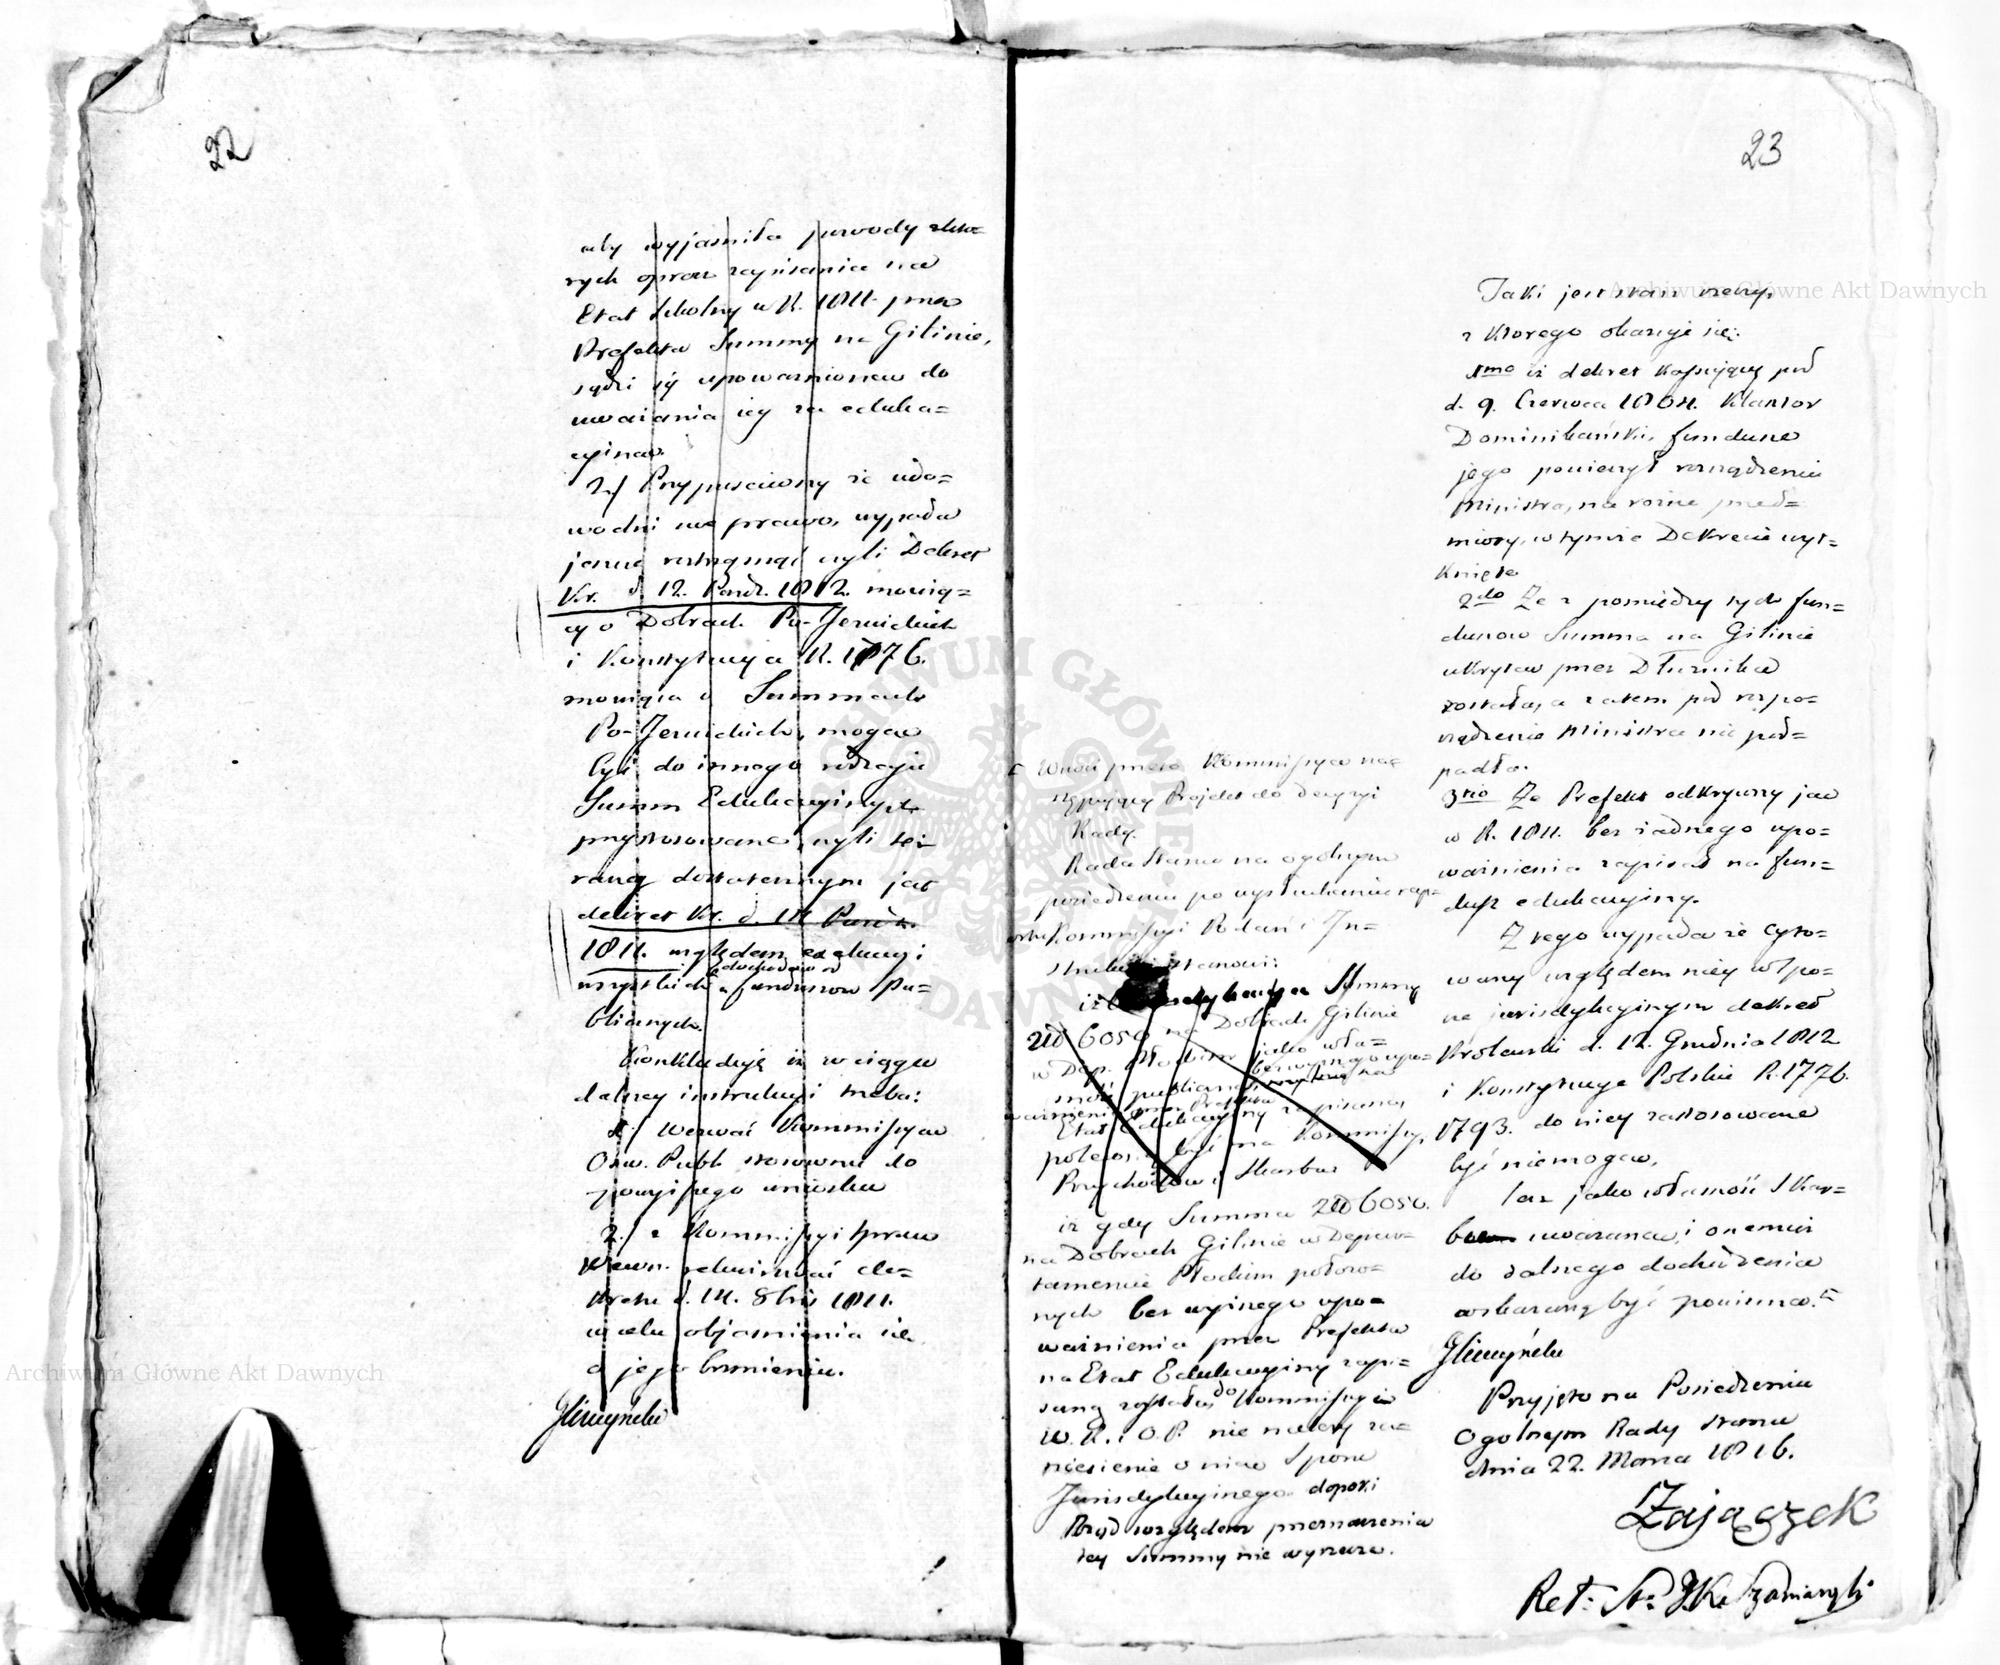 22
aby wyjaśniła powody z któ=
rych oprócz zapisania na
Etat szkolny w R. 1811. przez
Prefekta Summy na Gilinie,
sądzi się upoważnioną do
uważania iey za eduka=
cyiną.
2./ Przypuściwszy że udo=
wodni swe prawo, wypada
jeszcze rostrząsnąć czyli Dekret
Kr. d 12. Paźdz. 1812. mówią=
cy o Dobrach Po-Jezuickich
i Konstytucya R. 1776.
mówiąca o Summach
Po-Jezuickich, mogą
być do innego rodzaju
Summ Edukacyinych
przystosowane, czyli też
raczey dostatecznym jest
dekret Kr. d. 14 Paźdz.
1811. względem exekucyi
wszystkich dochodów z funduszów Pu=
blicznych.
Konkluduję iż w ciągu
dalszey instrukcyi trzeba:
1./ Wezwać Kommissyą
Ośw. Publ. stosownie do
powyższego wniosku
2./ z Kommissyi Spraw
Wewn. rekwirować de=
kretu d. 14. 8bris 1811.
w celu objaśnienia się
o jego brzmieniu.
Gliszczyński
23
Wnosi przeto Kommissya nas=
tępujący Projekt do decyzyi
Rady.
Rada Stanu na ogólnym
posiedzeniu po wysłuchaniu rap=
portu Kommissyi Podań i In=
strukcyi stanowi:
iż Summy
złł 6050 na Dobrach Gilinie
w Dep. Płockim jako wła=
sność publiczna bez wyższego upo=
ważnienia przez Prefekta na
Etat Edukacyiny zapisaney,
być ma Kommissyi
Przychodów i Skarbu
iż gdy Summa złł 6050.
na Dobrach Gilinie w Depar=
tamencie Płockim położo=
nych bez wyższego upo=
ważnienia przez Prefekta
na Etat Edukacyiny zapi=
saną została, do Kommissyi
W. R. i O. P. nie należy za=
niesienie o nią Sporu
Jurisdykcyinego dopóki
Rząd względem przeznaczenia
tey Summy nie wyrzecze.
Taki jest stan rzeczy,
z którego okazuje się:
1mo iż dekret kassujący pod
d. 9. Czerwca 1804. Klasztor
Dominikański, fundusze
jego powierzył rozrządzeniu
Ministra, na różne przed=
mioty, w tymże Dekrecie wyt=
knięte
2do Że z pomiędzy tych fun=
duszów Summa na Gilinie
ukrytą przez Dłużnika
została, a zatem pod rozpo=
rządzenie Ministra nie pod=
padła.
3tio Że Prefekt odkrywszy ją
w R. 1811. bez żadnego upo=
ważnienia zapisał na fun=
dusz edukacyiny.
Z tego wypada że cyto=
wany względem niey w spo=
rze jurisdykcyinym dekret
Królewski d. 12. Grudnia 1812
i Konstytucye Polskie R. 1776.
1793. do niey zastosowane
być niemogą,
lecz jako własność Skar=
bu uważana, i onemuż
do dalszego dochodzenia
wskazaną być powinna.
Gliszczyński
Przyjęto na Posiedzeniu
Ogólnym Rady Stanu
dnia 22. Marca 1816.
Zajączek
Ref: St: J. K. Szaniawski
Archiwum Główne Akt Dawnych
Archiwum Główne Akt Dawnych
ARCHIWUM GŁÓWNE AKT DAWNYCH